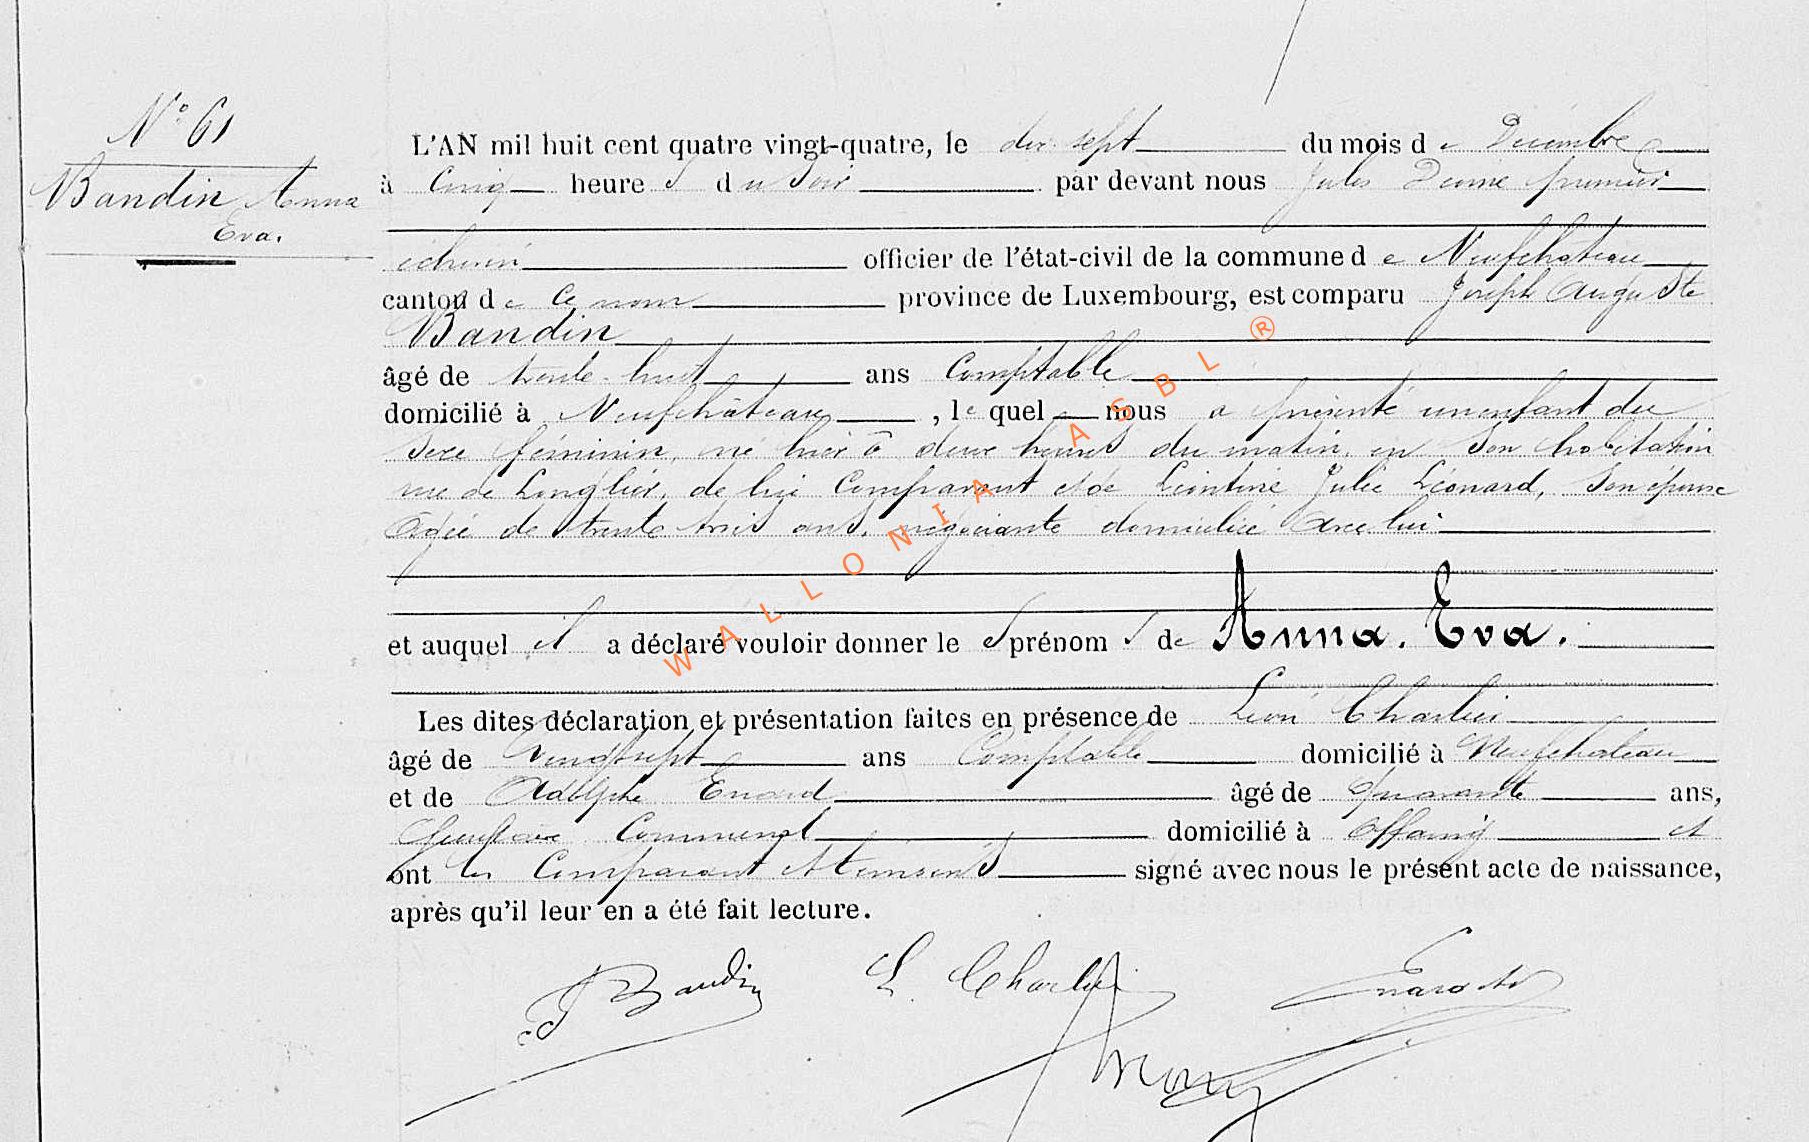 N° 61
Bandin Anna
Eva.
L'AN mil huit cent quatre vingt-quatre, le dix sept du mois de Décembre
à Cinq heures du Soir par devant nous Jules premier
échevin officier de l'état-civil de la commune de Neufchateau
canton de Ce nom province de Luxembourg, est comparu Joseph Auguste
Bandin
âgé de trente-huit ans Comptable
domicilié à Neufchâteau, lequel nous a présenté un enfant du
Sexe féminin, né hier à deux heures du matin, en Son habitation
rue de Longlier, de lui Comparant et de Léontine Julie Léonard, Son épouse
Agée de trente trois ans, négociante domiciliée avec lui
et auquel il a déclaré vouloir donner les prénoms de Anna. Eva.
Les dites déclaration et présentation faites en présence de Léon Charlier
âgé de Vingt sept ans Comptable domicilié à Neufchateau
et de Adolphe Enard âgé de Quarante ans,
domicilié à Offaing et
ont les Comparant et témoins signé avec nous le présent acte de naissance,
après qu'il leur en a été fait lecture.
J Bandin L. Charlier Enard Ad
WALLONIA ASBL ®